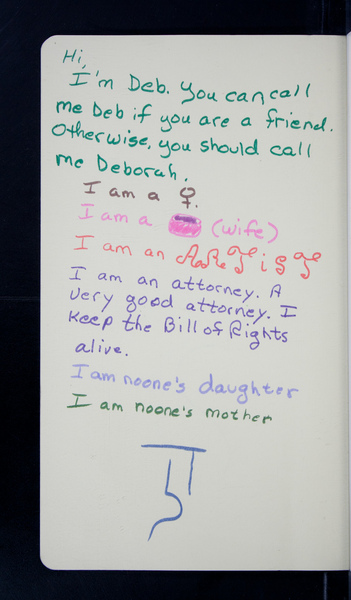 Hi,
I'm Deb. You can call
me Deb if you are a friend.
Otherwise, you should call
me Deborah.
I am a ♀.
I am a (wife)
I am an ARTisT
I am an attorney. A
very good attorney. I
keep the Bill of Rights
alive.
I am noone's daughter
I am noone's mother